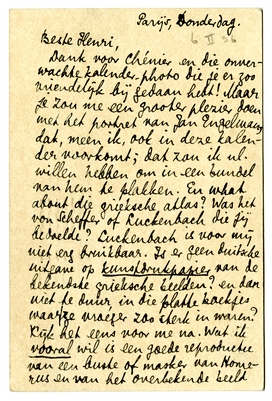 Parijs, Donderdag.
6 II 36
Beste Henri,
Dank voor Chénier en die onver-
wachte kalender-photo die je er zoo
vriendelijk bij gedaan hebt! Maar
je zou me een grooter plezier doen
met het portret van Jan Engelman,
dat, meen ik, ook in deze kalen-
der voorkomt; dat zou ik nl.
willen hebben om in een bundel
van hem te plakken. En what
about die grieksche atlas? Was het
von Scheffer of Luckenbach die jij
bedoelde? Luckenbach is voor mij
niet erg bruikbaar. Is er geen duitsche
uitgave op kunstdrukpapier van de
bekendste grieksche beelden? en dan
niet te duur, in die platte boekjes
waarze vroeger zoo sterk in waren?
Kijk het eens voor me na. Wat ik
vooral wil is een goede reproductie
van een buste of masker van Home-
rus en van het overbekende beeld